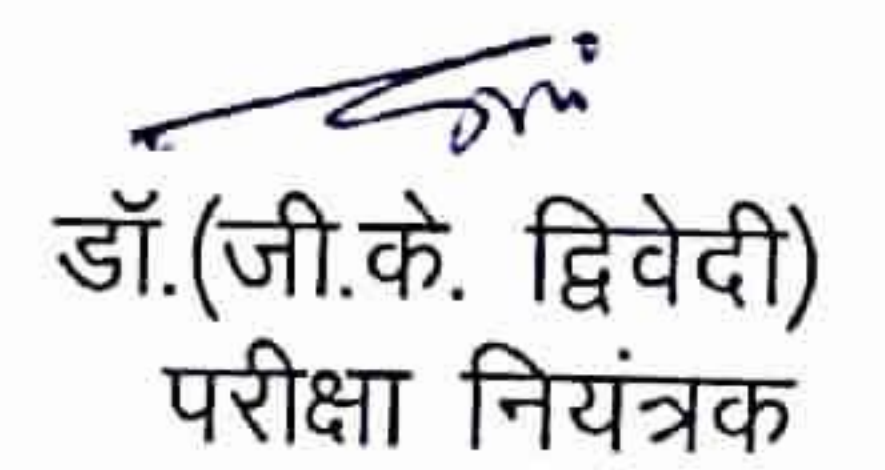 डॉ.(जी.के. द्विवेदी)
परीक्षा नियंत्रक